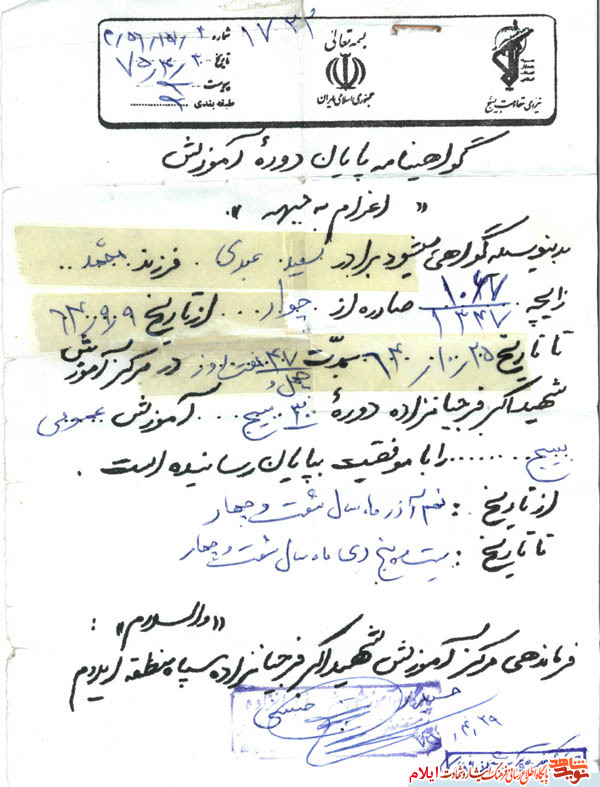 بسمه تعالی
جمهوری اسلامی ایران
نیروی مقاومت بسیج
۱۷۰۳۲
شماره
تاریخ ۷۵/۳/۳۰
پیوست
طبقه بندی
گواهینامه پایان دورهٔ آموزش
« اعزام به جبهه » .
بدینوسیله گواهی میشود برادر سعید عبدی . فرزند محمد ..
صادره از چوار ... از تاریخ ۶۴/۰۹/۹
۱۳۴۷
تا تاریخ ۶۴/۱۰/۲۵ بمدت ۴۷ چهل و هفت روز در مرکز آموزش
شهید اکبر فرجیانزاده دورهٔ ۳۰ بسیج ... آموزش عمومی
بسیج ........ را با موفقیت بپایان رسانیده است .
از تاریخ : نهم آذر ماه سال شصت و چهار
تا تاریخ : بیست و پنج دی ماه سال شصت و چهار
«والسلام» :
فرماندهی مرکز آموزش شهید اکبر فرجیانزاده سپاه منطقه ایلام
نوید شاهد پایگاه اطلاع رسانی فرهنگ ایثار و شهادت ایلام